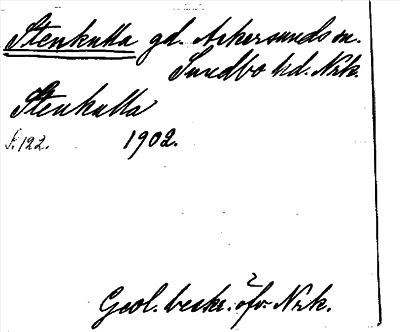 Stenkulla gd. Askersunds sn.
Sundbo hd. Nrk.
Stenkulla
S. 122. 1902.
Geol. beskr. öfv. Nrk.